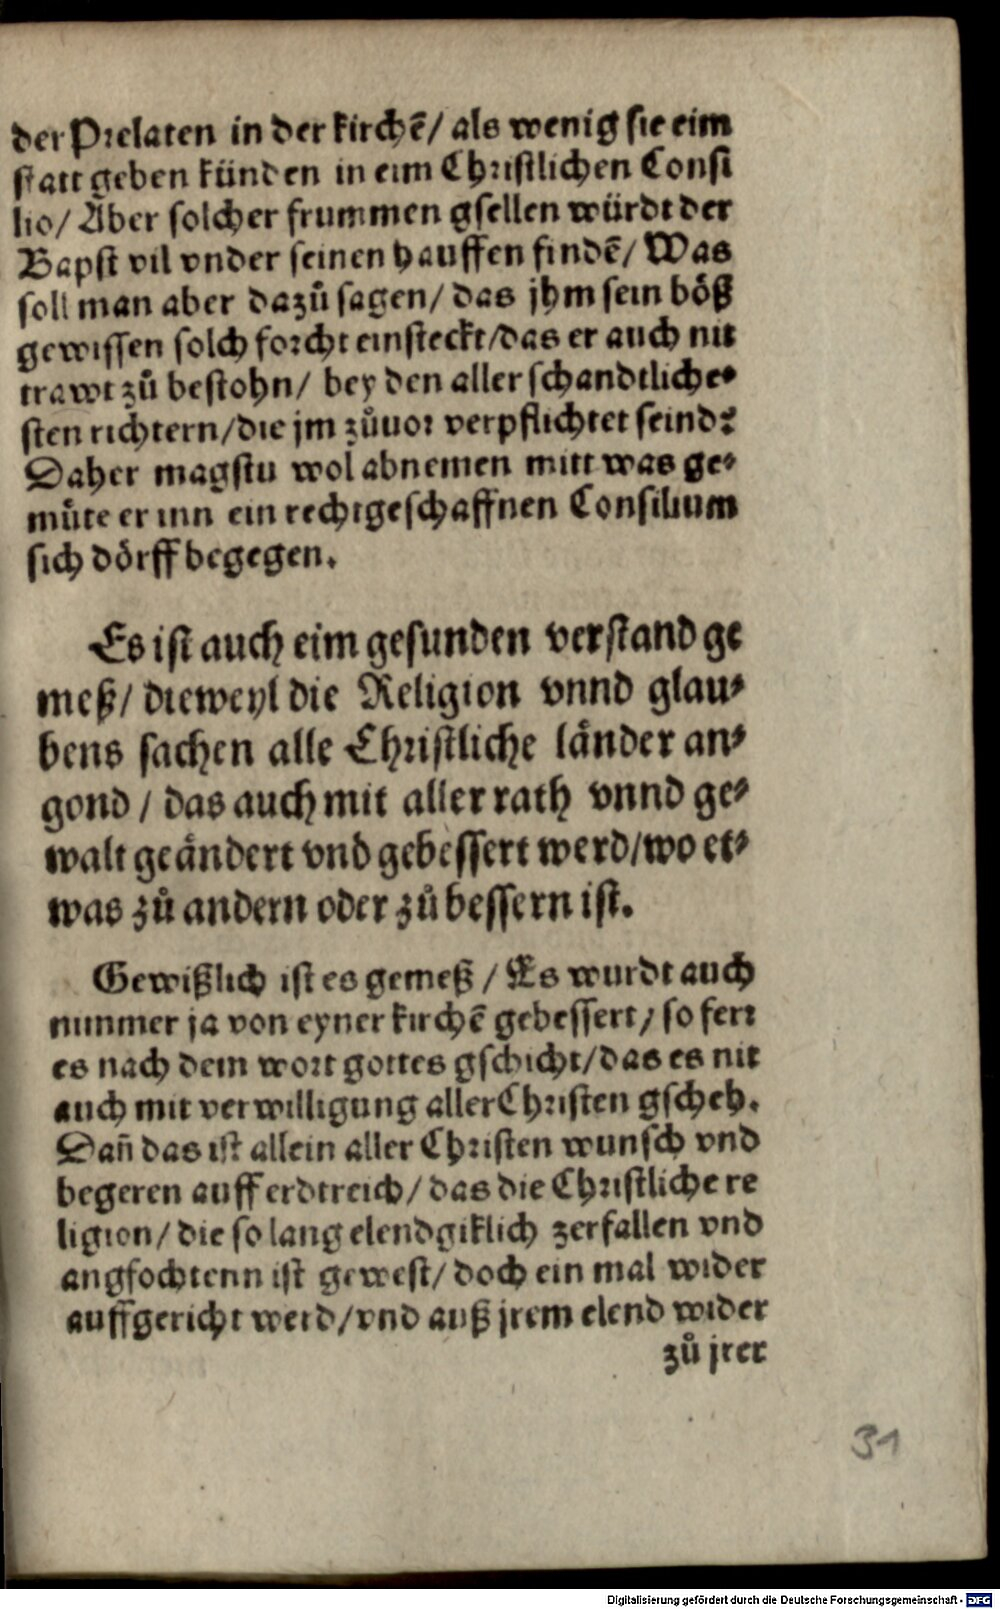 der Prelaten in der kirchē/ als wenig sie eim
statt geben künden in eim Christlichen Consi
lio/ Aber solcher frummen gsellen würdt der
Bapst vil vnder seinen hauffen findē/ Was
soll man aber dazů sagen/ das jhm sein böß
gewissen solch forcht einsteckt/das er auch nit
trawt zů bestohn/ bey den aller schandtliche⸗
sten richtern/die jm zůuor verpflichtet seind?
Daher magstu wol abnemen mitt was ge⸗
můte er inn ein rechtgeschaffnen Consilium
sich dörff begegen.
Es ist auch eim gesunden verstand ge
meß/ dieweyl die Religion vnnd glau⸗
bens sachen alle Christliche länder an⸗
gond / das auch mit aller rath vnnd ge⸗
walt geändert vnd gebessert werd/wo et⸗
was zů andern oder zů bessern ist.
Gewißlich ist es gemeß / Es wurdt auch
nimmer ja von eyner kirchē gebessert/ so ferr
es nach dem wort gottes gschicht/das es nit
auch mit verwilligung aller Christen gscheh.
Dañ das ist allein aller Christen wunsch vnd
begeren auff erdtreich/ das die Christliche re
ligion/ die so lang elendgiklich zerfallen vnd
angfochtenn ist gewest/ doch ein mal wider
auffgericht werd/vnd auß jrem elend wider
zů jrer
31
Digitalisierung gefördert durch die Deutsche Forschungsgemeinschaft - DFG